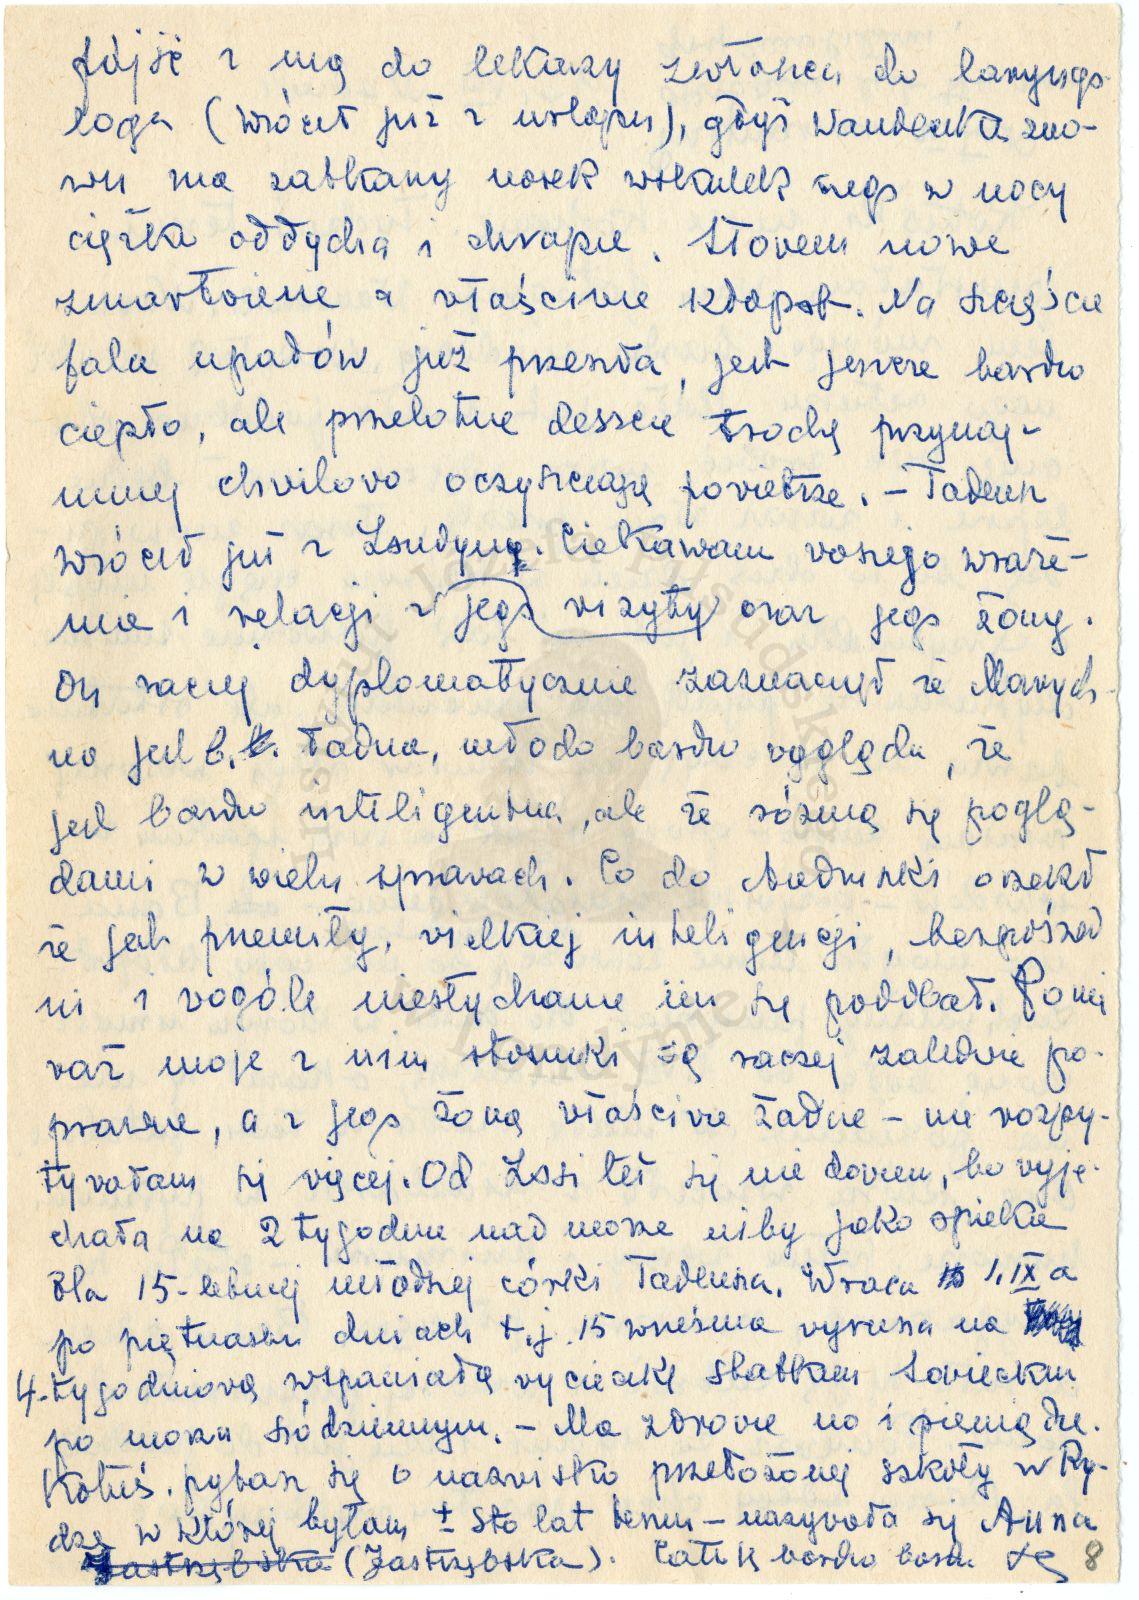 pójść z nią do lekarzy zwłaszcza do laryngo-
loga (wrócił już z urlopu), gdyż Wandeczka zno-
wu ma zatkany nosek wskutek czego w nocy
ciężko oddycha i chrapie. Słowem nowe
zmartwienie a właściwie kłopot. Na szczęście
fala upałów już przeszła, jest jeszcze bardzo
ciepło, ale przelotne deszcze trochę przynaj-
mniej chwilowo oczyszczają powietrze. – Tadeusz
wrócił już z Londynu. Ciekawam waszego wraże-
nia i relacji z jego wizyty oraz jego żony.
On raczej dyplomatycznie zaznaczył że Marych-
na jest b. ładna, młodo bardzo wygląda, że
jest bardzo inteligentna, ale że różnią się poglą-
dami w wielu sprawach. Co do Andrzejki orzekł
że jest przemiły, wielkiej inteligencji, bezpośred
ni i wogóle niesłychanie im się podobał. Ponie
waż moje z nim stosunki są raczej zaledwie po-
prawne, a z jego żoną właściwie żadne – nie rozpy-
tywałam się więcej. Od Zosi też się nie dowiem, bo wyje-
chała na 2 tygodnie nad morze niby jako opieka
dla 15-letniej młodszej córki Tadeusza. Wraca 1.IX a
po piętnastu dniach t.j. 15 września wyrusza na
4-tygodniową wspaniałą wycieczkę statkiem sowieckim
po morzu śródziemnym. – Ma zdrowie no i pieniądze.
Kotuś. pytasz się o nazwisko przełożonej szkoły w Ry-
dze w której byłam ± sto lat temu – nazywała się Anna
Jastrzębska (Jastrzębska). Całuję bardzo 8